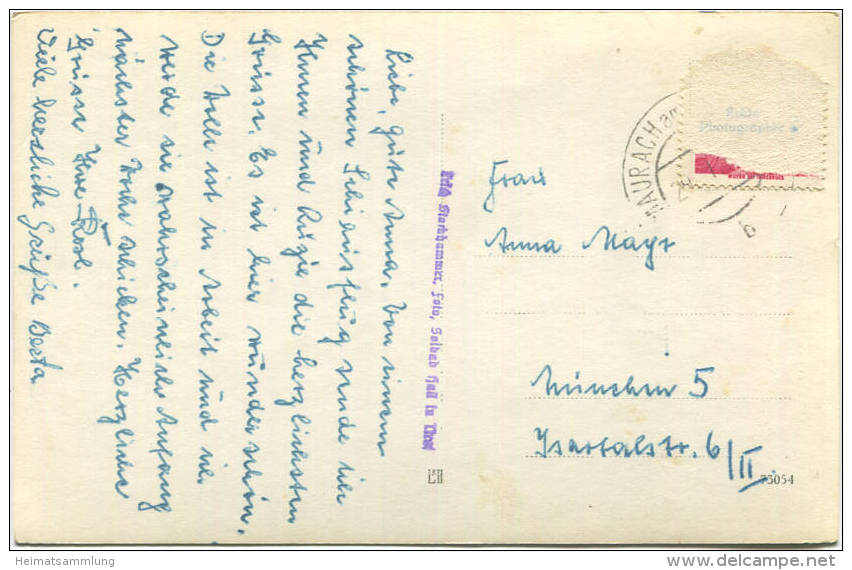 Liebe, gute Anna, Von einem
schönen Skiausflug sende ich
Ihnen und Luzie die herzlichsten
Grüsse. Es ist hier wunderschön.
Die Wolle ist in Arbeit und ich
werde sie wahrscheinlich Anfang
nächster Woche schicken. Herzliche
Grüsse Ihre Rosl.
Viele herzliche Grüße Berta
Foto, Solbad Hall in Tirol
MAURACH am
Photographie
Frau
Anna Mayr
München 5
Isartalstr. 6/II
73054
Heimatsammlung
www.delcampe.net